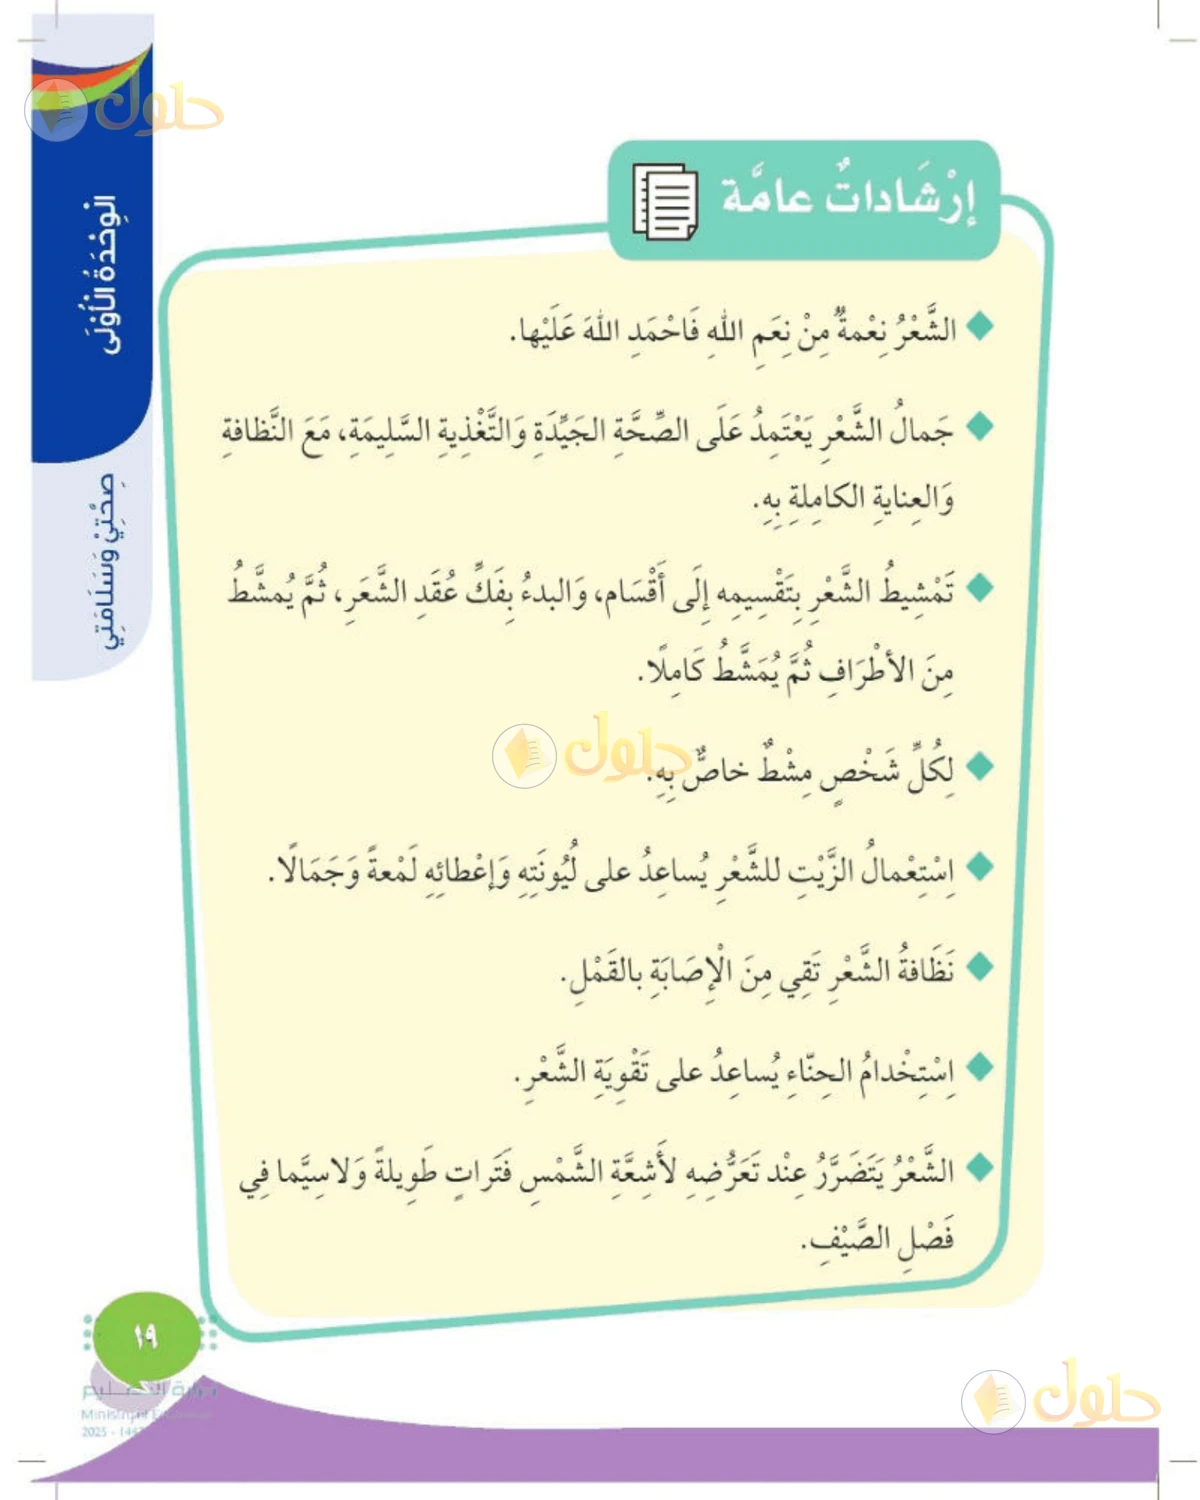 حلول
الوِحْدَةُ الْأُوْلَى
صِحَّتِيْ وَسَلَامَتِي
إرْشَاداتٌ عامَّة
الشَّعْرُ نِعْمةٌ مِنْ نِعَمِ اللهِ فَاحْمَدِ اللهَ عَلَيْها.
جَمالُ الشَّعْرِ يَعْتَمِدُ عَلَى الصِّحَّةِ الجَيِّدَةِ وَالتَّغْذِيةِ السَّلِيمَةِ، مَعَ النَّظافةِ
وَالعِنايةِ الكامِلةِ بِهِ.
تَمْشِيطُ الشَّعْرِ بِتَقْسِيمِه إِلَى أَقْسَام، وَالبدءُ بِفَكِّ عُقَدِ الشَّعَرِ، ثُمَّ يُمشَّطُ
مِنَ الأطْرَافِ ثُمَّ يُمَشَّطُ كَامِلًا.
لِكُلِّ شَخْصٍ مِشْطٌ خاصٌّ بِهِ.
حلول
اِسْتِعْمالُ الزَّيْتِ للشَّعْرِ يُساعِدُ على لُيُونَتِهِ وَإعْطائِهِ لَمْعةً وَجَمَالًا.
نَظَافةُ الشَّعْرِ تَقِي مِنَ الْإِصَابَةِ بالقَمْلِ.
اِسْتِخْدامُ الحِنّاءِ يُساعِدُ على تَقْوِيَةِ الشَّعْرِ.
الشَّعْرُ يَتَضَرَّرُ عِنْد تَعَرُّضِهِ لأَشِعَّةِ الشَّمْسِ فَتَراتٍ طَوِيلةً وَلاسِيَّما فِي
فَصْلِ الصَّيْفِ.
١٩
وزارة التعليم
Ministry of Education
2025 - 1447
حلول